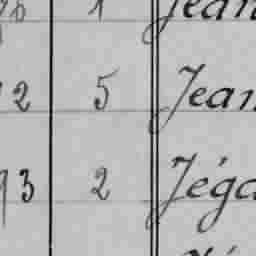 1 Jean
2 5 Jean
93 2 Jéga